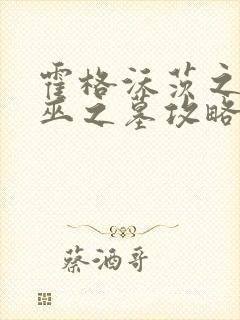 霍格沃茨之
巫之墓攻略
蔡酒哥